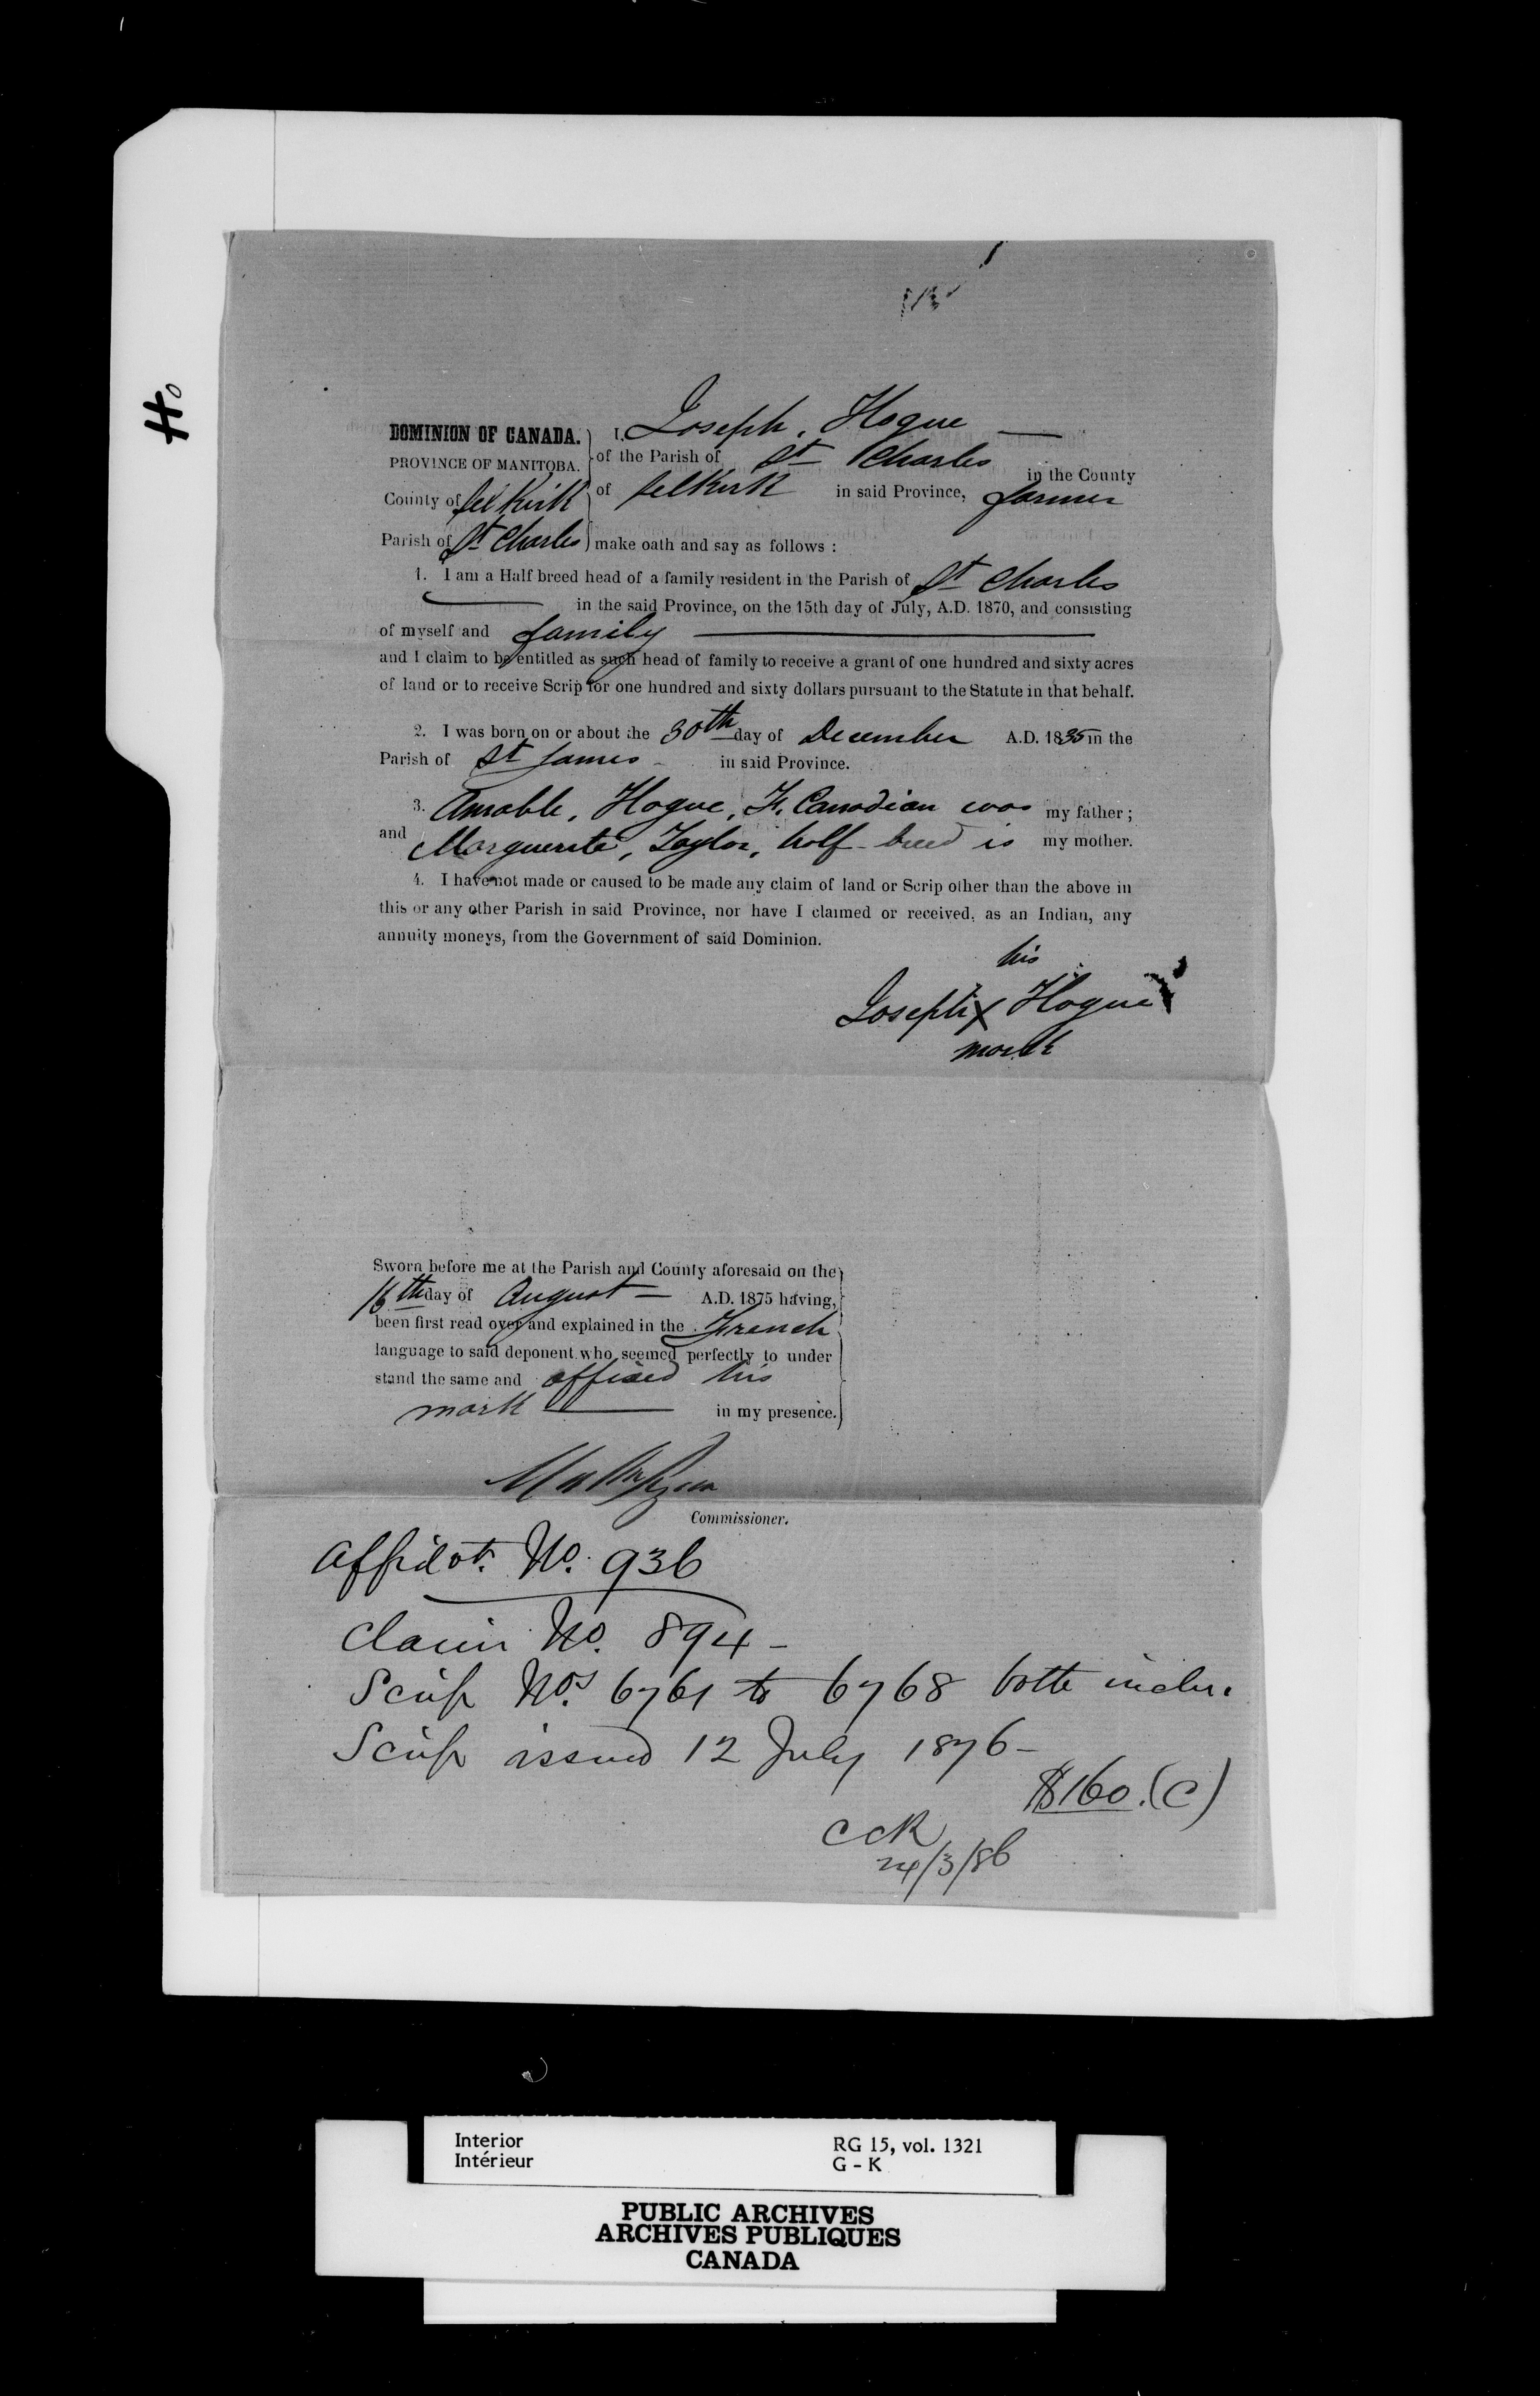 Ho
DOMINION OF CANADA.
PROVINCE OF MANITOBA.
County of Selkirk
Parish of St Charles
I, Joseph, Hogue
of the Parish of St Charles in the County
of Selkirk in said Province, farmer
make oath and say as follows :
1. I am a Half breed head of a family resident in the Parish of St Charles
in the said Province, on the 15th day of July, A.D. 1870, and consisting
of myself and family
and I claim to be entitled as such head of family to receive a grant of one hundred and sixty acres
of land or to receive Scrip for one hundred and sixty dollars pursuant to the Statute in that behalf.
2. I was born on or about the 30th day of December A.D. 1835 in the
Parish of St James in said Province.
3. Amable, Hogue, Fr. Canadian was my father ;
and Marguerite, Taylor, half-breed is my mother.
4. I have not made or caused to be made any claim of land or Scrip other than the above in
this or any other Parish in said Province, nor have I claimed or received, as an Indian, any
annuity moneys, from the Government of said Dominion.
his
Joseph X Hogue
mark
Sworn before me at the Parish and County aforesaid on the
16th day of August A.D. 1875 having,
been first read over and explained in the French
language to said deponent who seemed perfectly to under
stand the same and affixed his
mark in my presence.
Commissioner.
Affidvt. No. 936
Claim No. 894-
Scrip Nos. 6761 to 6768 both inclu.
Scrip issued 12 July 1876-
$160.(C)
CCR
24/3/86
Interior
Intérieur
RG 15, vol. 1321
G - K
PUBLIC ARCHIVES
ARCHIVES PUBLIQUES
CANADA